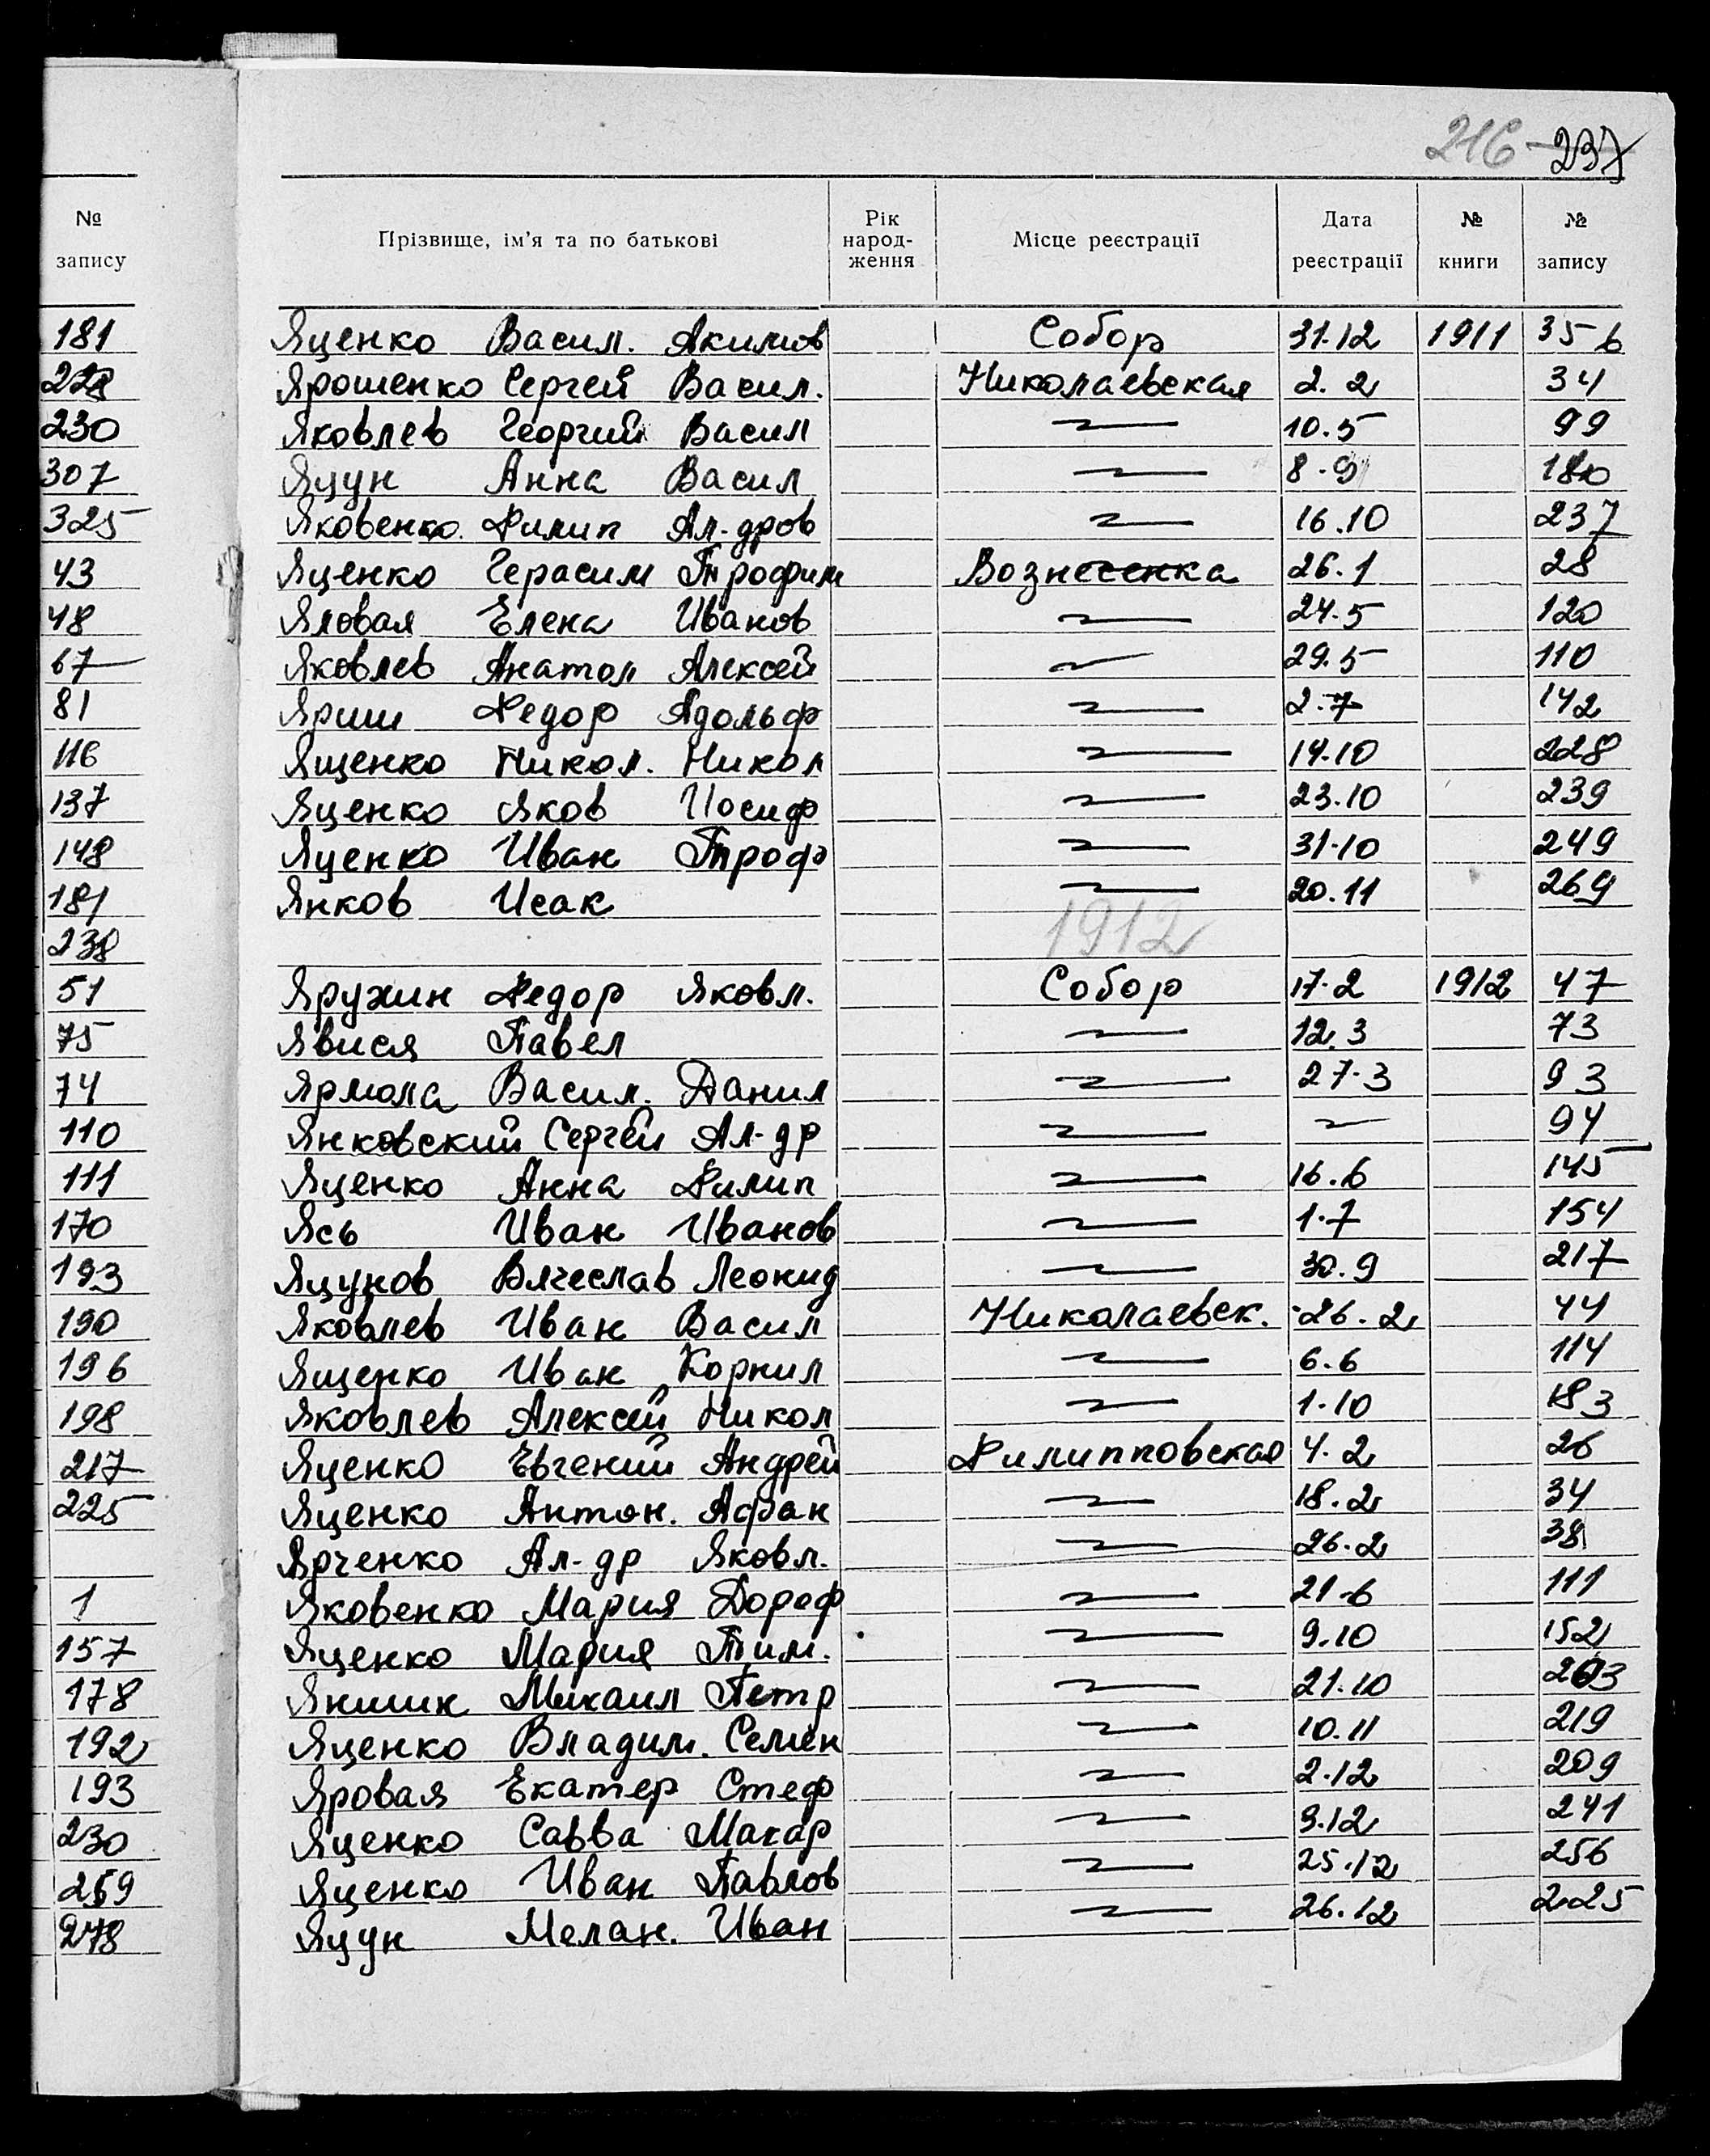 216 237
№ запису
Прізвище, ім'я та по батькові Рік народ-ження Місце реєстрації Дата реєстрації № книги № запису
181 Яценко Васил. Акимов Собор 31.12 1911 356
228 Ярошенко Сергей Васил. Николаевская 2.2 34
230 Яковлев Георгий Васил — 10.5 99
307 Яцун Анна Васил — 8.9 180
325 Яковенко Филип Ал-дров — 16.10 237
43 Яценко Герасим Трофим Вознесенка 26.1 28
48 Яловая Елена Иванов — 24.5 120
67 Яковлев Анатол Алексей — 29.5 110
81 Яриш Федор Адольф — 2.7 142
116 Ященко Никол. Никол — 14.10 228
137 Яценко Яков Иосиф — 23.10 239
148 Яценко Иван Троф — 31.10 249
181 Янков Исак — 20.11 269
238 1912
51 Яружин Федор Яковл. Собор 17.2 1912 47
75 Явися Павел — 12.3 73
74 Ярмола Васил. Данил — 27.3 93
110 Янковский Сергей Ал-др — — 94
111 Яценко Анна Филип — 16.6 145
170 Ясь Иван Иванов — 1.7 154
193 Яцунов Вячеслав Леонид — 30.9 217
190 Яковлев Иван Васил Николаевск. 26.2 44
196 Ященко Иван Корнил — 6.6 114
198 Яковлев Алексей Никол — 1.10 183
217 Яценко Евгений Андрей Филипповская 4.2 26
225 Яценко Антон. Афан — 18.2 34
Ярченко Ал-др Яковл. — 26.2 38
1 Яковенко Мария Дороф — 21.6 111
157 Яценко Мария Тим. — 9.10 152
178 Яншик Михаил Петр — 21.10 203
192 Яценко Владим. Семен — 10.11 219
193 Яровая Екатер Стеф — 2.12 209
230 Яценко Савва Макар — 9.12 241
259 Яценко Иван Павлов — 25.12 256
278 Яцун Мелан. Иван — 26.12 225